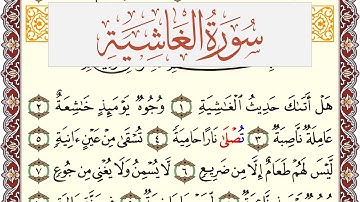 سُورَةُ الْغَاشِيَةِ
هَلْ أَتَىٰكَ حَدِيثُ ٱلْغَـٰشِيَةِ ١ وُجُوهٌ يَوْمَئِذٍ خَـٰشِعَةٌ ٢
عَامِلَةٌ نَّاصِبَةٌ ٣ تُصْلَىٰ نَارًا حَامِيَةً ٤ تُسْقَىٰ مِنْ عَيْنٍ ءَانِيَةٍ ٥
لَّيْسَ لَهُمْ طَعَامٌ إِلَّا مِن ضَرِيعٍ ٦ لَّا يُسْمِنُ وَلَا يُغْنِى مِن جُوعٍ ٧